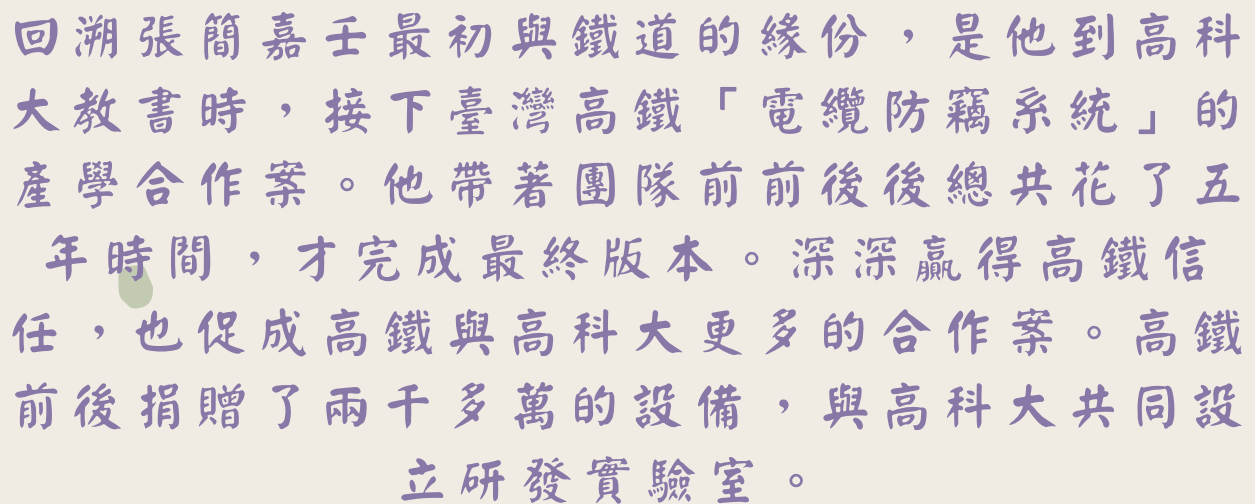 回溯張簡嘉壬最初與鐵道的緣份，是他到高科
大教書時，接下臺灣高鐵「電纜防竊系統」的
產學合作案。他帶著團隊前前後後總共花了五
年時間，才完成最終版本。深深贏得高鐵信
任，也促成高鐵與高科大更多的合作案。高鐵
前後捐贈了兩千多萬的設備，與高科大共同設
立研發實驗室。